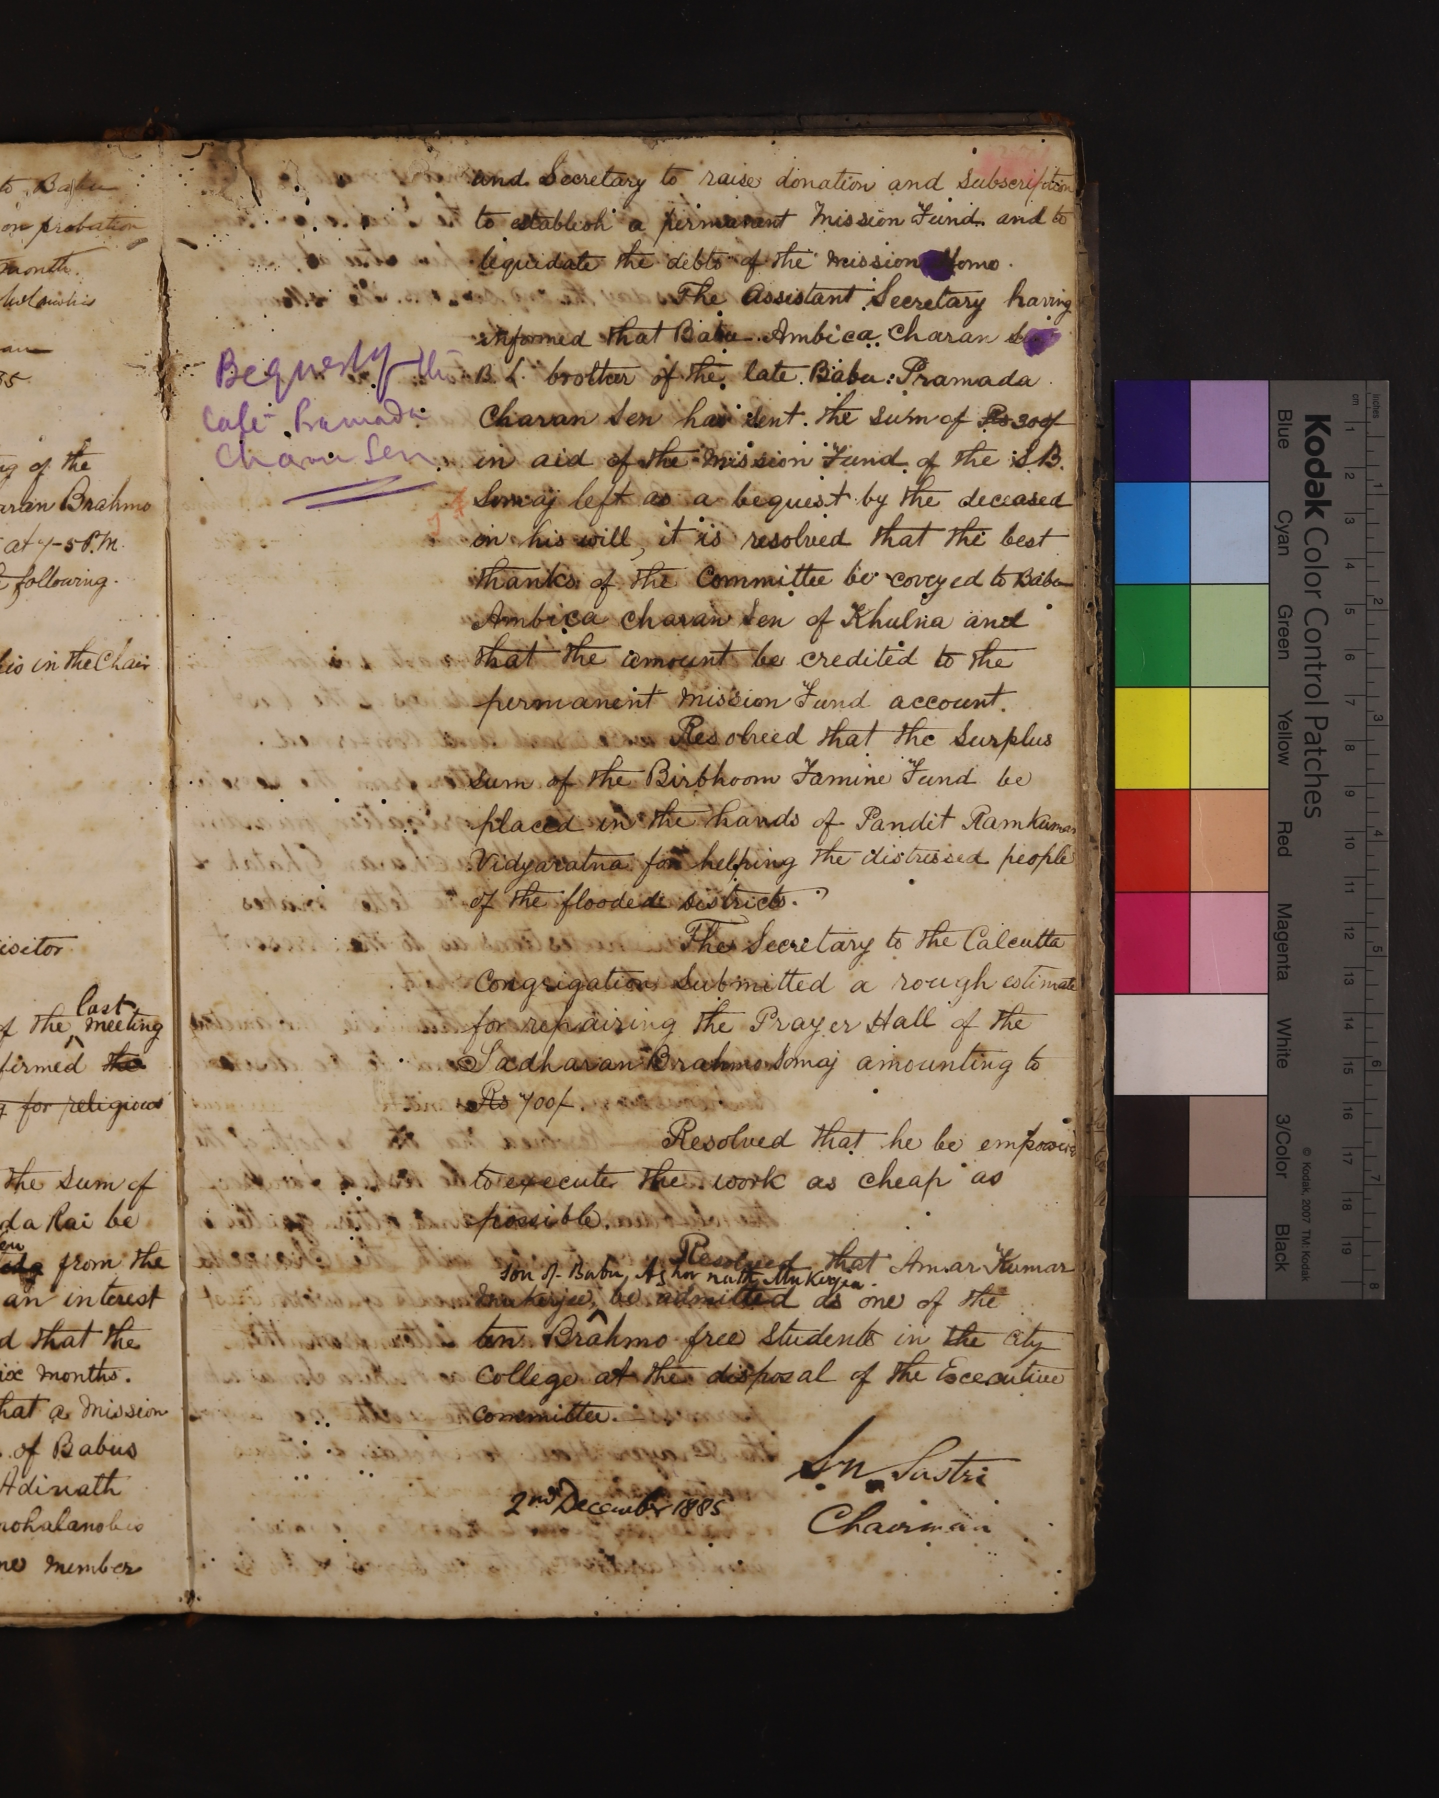 to Babu
on probation
month.
35.
ng of the
aran Brahmo
at 7-5 P.M.
following.
in the Chair
isitor
last
of the meeting
firmed the
for religious
the Sum of
da Rai be
from the
an interest
d that the
ix months.
hat a Mission
of Babus
Adinath
mohalanobis
ne member
and Secretary to raise donation and Subscription
to establish a permanent Mission Fund and to
liquidate the debts of the Mission Home.
The Assistant Secretary having
informed that Babu Ambica Charan Sen
B L brother of the late Babu Pramada
Charan Sen has sent the sum of Rs 300/
in aid of the Mission Fund of the S.B.
Somaj left as a bequest by the deceased
in his will, it is resolved that the best
thanks of the Committee be coveyed to Babu
Ambica Charan Sen of Khulna and
that the amount be credited to the
permanent Mission Fund account.
Bequest of the
late Pramada
Charan Sen
Resolved that the Surplus
sum of the Birbhoom Famine Fund be
placed in the hands of Pandit Ramkumar
Vidyaratna for helping the distressed people
of the flooded districts.
The Secretary to the Calcutta
Congrigation Submitted a rough estimate
for repairing the Prayer Hall of the
Sadharan Brahmo Somaj amounting to
Rs 700/.
Resolved that he be empowered
to execute the work as cheap as
possible.
Resolved that Amar Kumar
son of Babu Aghor nath Mukerjea.
Mukerjee, be admitted as one of the
ten Brahmo free Students in the City
College at the disposal of the Executive
Committee.
S. N. Sastri
2nd December 1885
Chairman
Kodak Color Control Patches
© Kodak, 2007 TM: Kodak
Blue Cyan Green Yellow Red Magenta White 3/Color Black
inches 1 2 3 4 5 6 7 8
cm 1 2 3 4 5 6 7 8 9 10 11 12 13 14 15 16 17 18 19